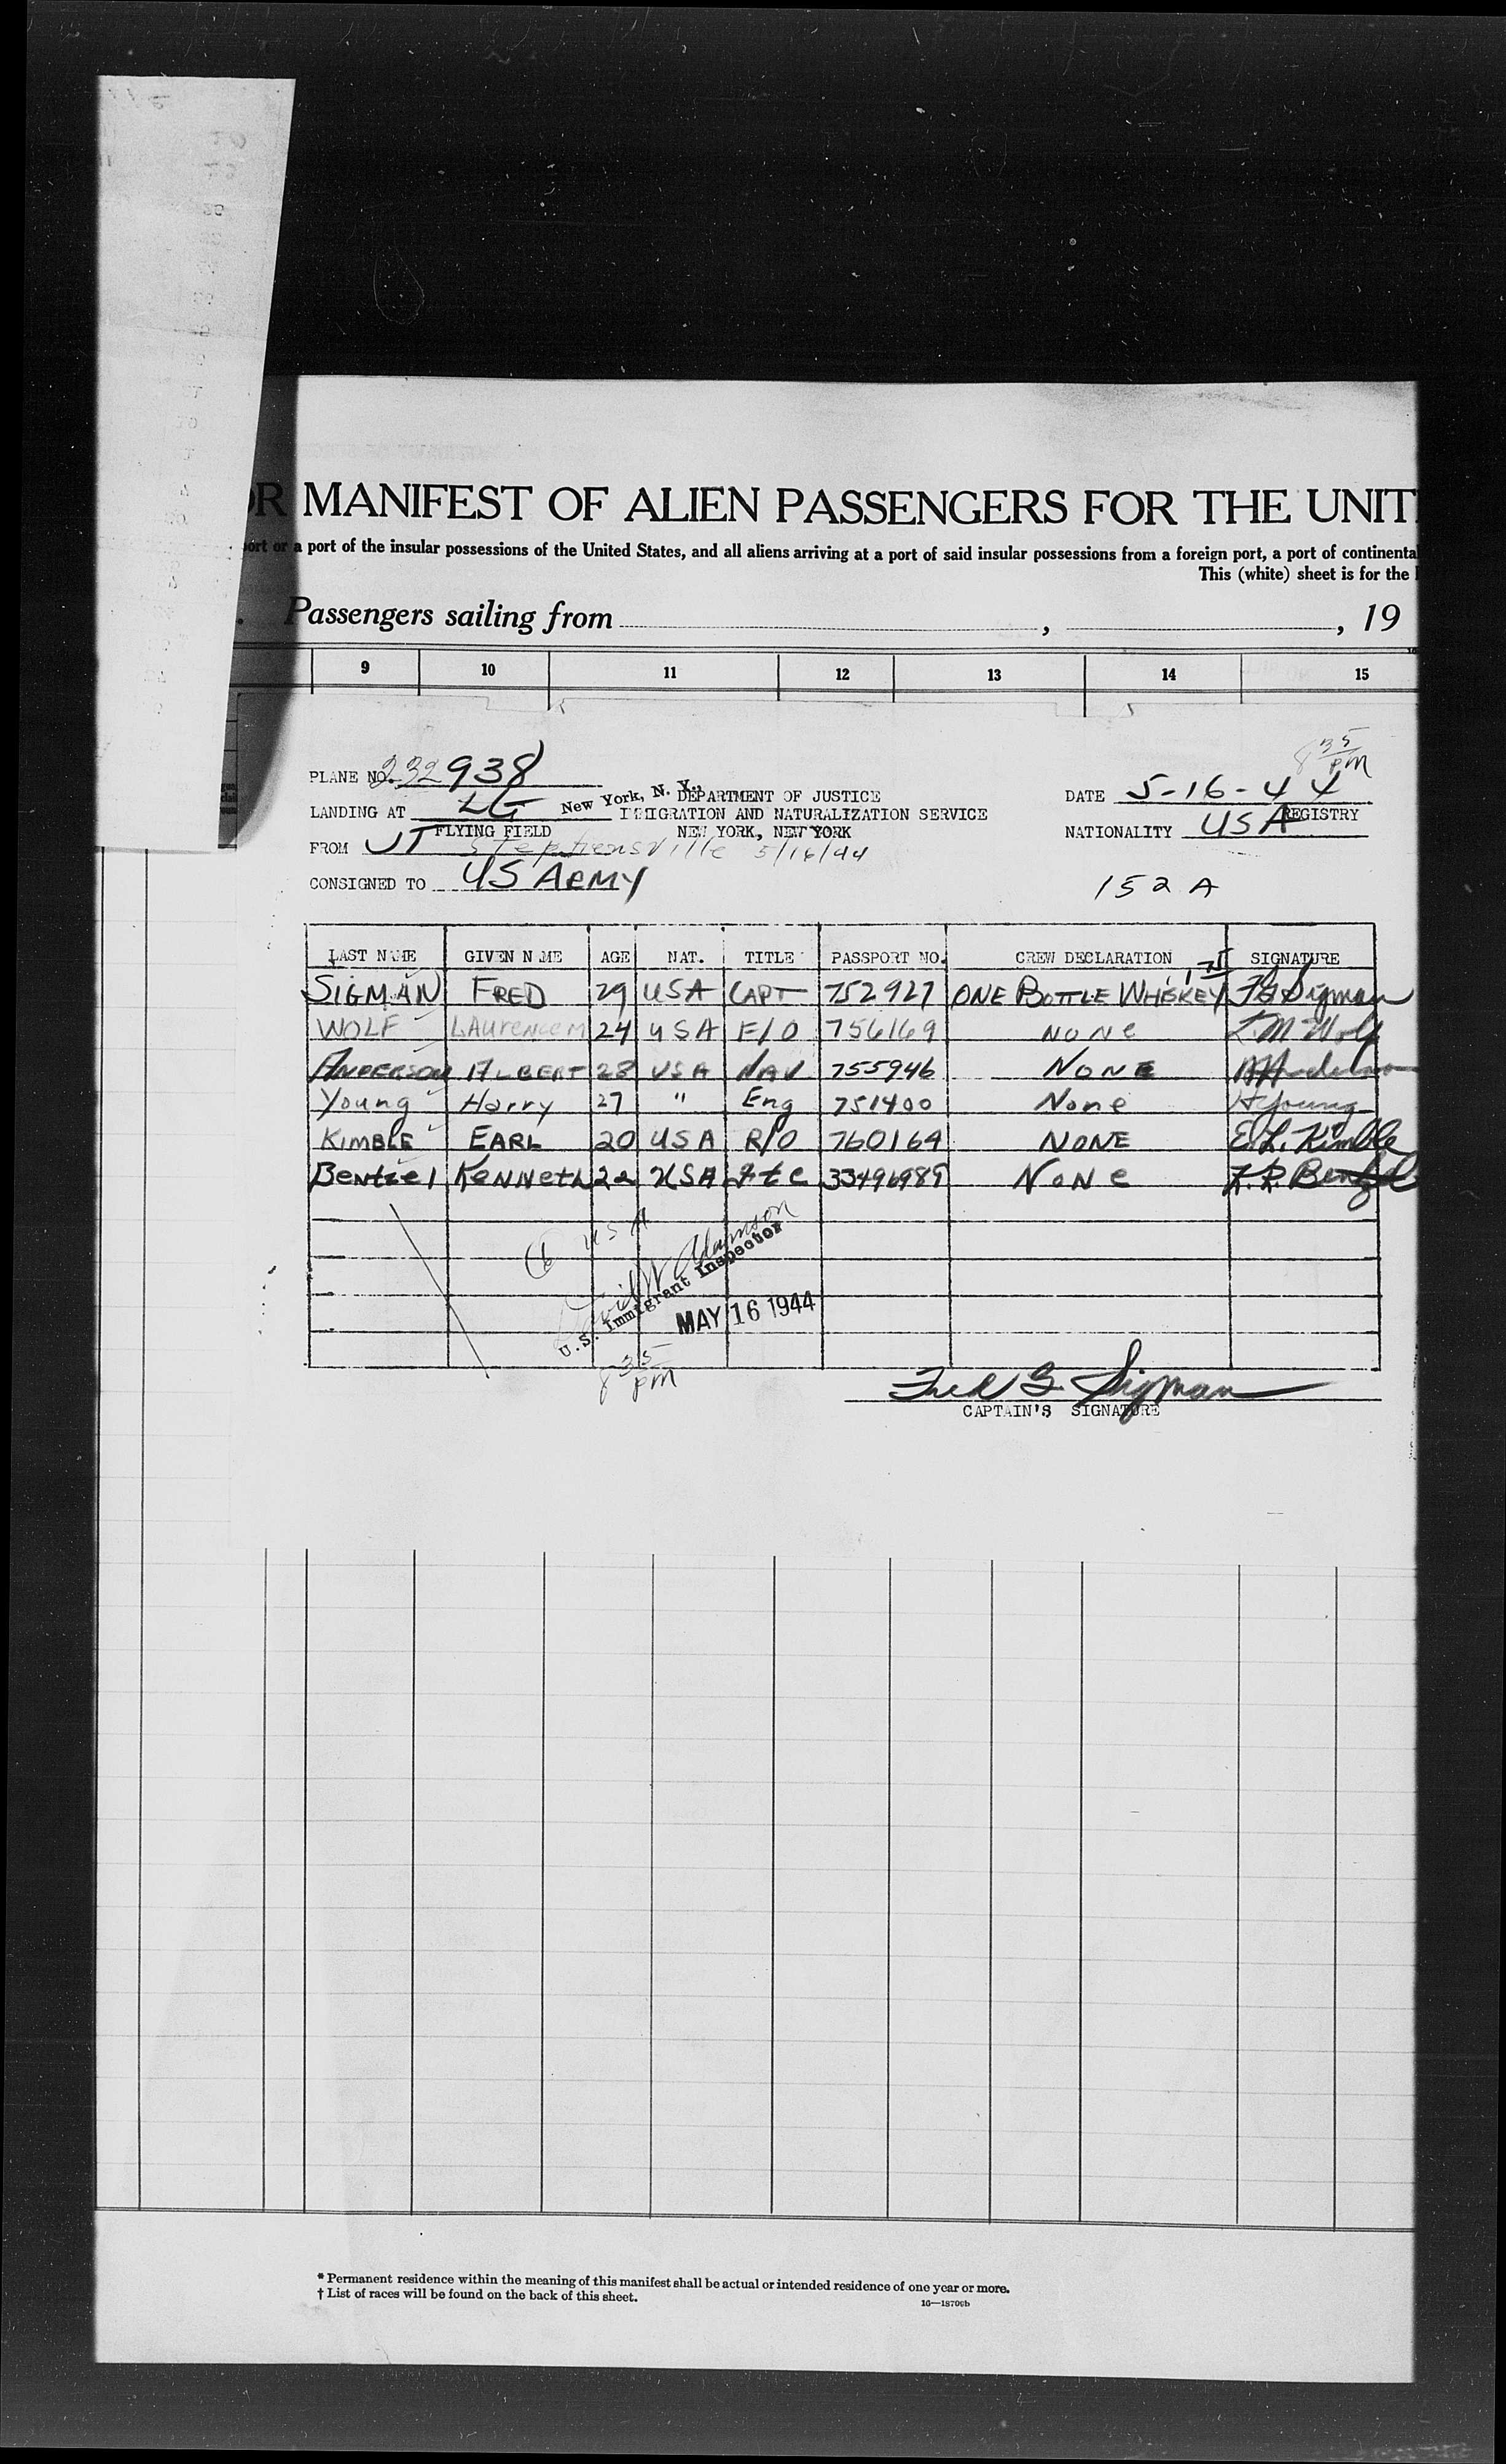 OR MANIFEST OF ALIEN PASSENGERS FOR THE UNIT
port or a port of the insular possessions of the United States, and all aliens arriving at a port of said insular possessions from a foreign port, a port of continental
This (white) sheet is for the
Passengers sailing from , , 19
9 10 11 12 13 14 15
8 35 PM
PLANE NO. 232938
DATE 5-16-44
New York, N. Y.,
DEPARTMENT OF JUSTICE
LANDING AT LG
IMMIGRATION AND NATURALIZATION SERVICE
REGISTRY
FLYING FIELD
NEW YORK, NEW YORK
NATIONALITY USA
FROM JT Stephensville 5/16/44
CONSIGNED TO US ARMY
152 A
LAST NAME GIVEN NAME AGE NAT. TITLE PASSPORT NO. CREW DECLARATION SIGNATURE
SIGMAN FRED 29 USA CAPT 752927 ONE BOTTLE WHISKEY 1 75 F G Sigman
WOLF LAurence M 24 USA F/O 756169 NONe L M Wolf
ANDERSON ALBERT 28 USA NAV 755946 NONE A Anderson
Young Harry 27 " Eng 751400 None H Young
KIMBLE EARL 20 USA R/O 760169 NONE E. L. Kimble
Bentzel KeNNeth 22 USA F t C 33496989 NoNe K. R. Bentzel
6 USA
David W Adamson
U.S. Immigrant Inspector
MAY 16 1944
8 35 PM
Fred G. Sigman
CAPTAIN'S SIGNATURE
* Permanent residence within the meaning of this manifest shall be actual or intended residence of one year or more.
† List of races will be found on the back of this sheet.
16—18700b